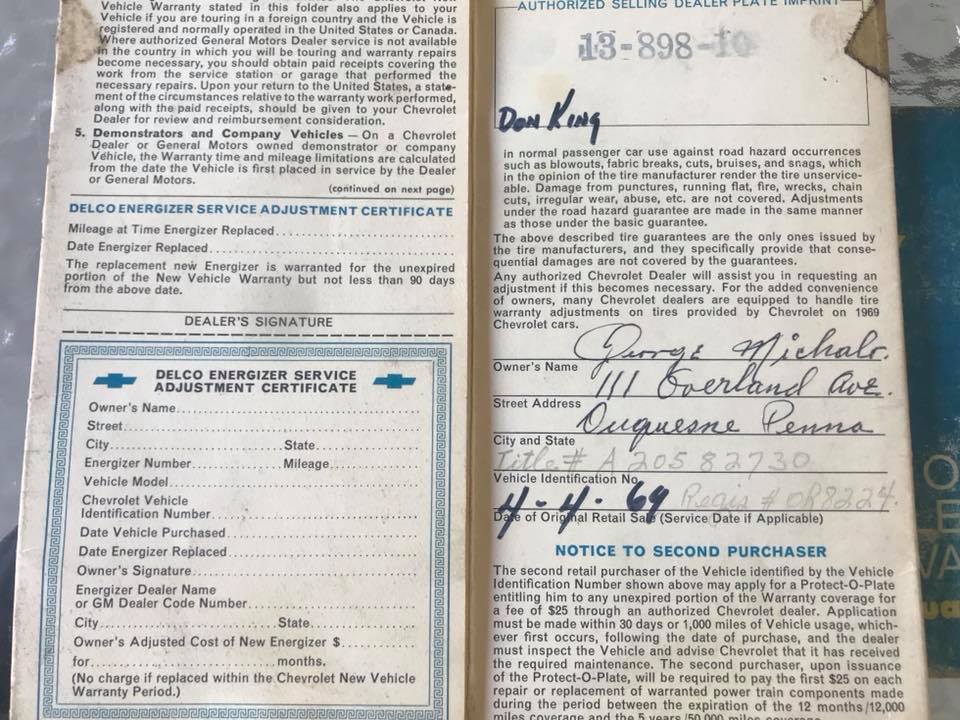 Vehicle Warranty stated in this folder also applies to your
Vehicle if you are touring in a foreign country and the Vehicle is
registered and normally operated in the United States or Canada.
Where authorized General Motors Dealer service is not available
in the country in which you will be touring and warranty repairs
become necessary, you should obtain paid receipts covering the
work from the service station or garage that performed the
necessary repairs. Upon your return to the United States, a state-
ment of the circumstances relative to the warranty work performed,
along with the paid receipts, should be given to your Chevrolet
Dealer for review and reimbursement consideration.
5. Demonstrators and Company Vehicles — On a Chevrolet
Dealer or General Motors owned demonstrator or company
Vehicle, the Warranty time and mileage limitations are calculated
from the date the Vehicle is first placed in service by the Dealer
or General Motors.
(continued on next page)
DELCO ENERGIZER SERVICE ADJUSTMENT CERTIFICATE
Mileage at Time Energizer Replaced
Date Energizer Replaced
The replacement new Energizer is warranted for the unexpired
portion of the New Vehicle Warranty but not less than 90 days
from the above date.
DEALER'S SIGNATURE
DELCO ENERGIZER SERVICE
ADJUSTMENT CERTIFICATE
Owner's Name
Street
City State
Energizer Number Mileage
Vehicle Model
Chevrolet Vehicle
Identification Number
Date Vehicle Purchased
Date Energizer Replaced
Owner's Signature
Energizer Dealer Name
or GM Dealer Code Number
City State
Owner's Adjusted Cost of New Energizer $
for months.
(No charge if replaced within the Chevrolet New Vehicle
Warranty Period.)
AUTHORIZED SELLING DEALER PLATE IMPRINT
13-898-10
Don King
in normal passenger car use against road hazard occurrences
such as blowouts, fabric breaks, cuts, bruises, and snags, which
in the opinion of the tire manufacturer render the tire unservice-
able. Damage from punctures, running flat, fire, wrecks, chain
cuts, irregular wear, abuse, etc. are not covered. Adjustments
under the road hazard guarantee are made in the same manner
as those under the basic guarantee.
The above described tire guarantees are the only ones issued by
the tire manufacturers, and they specifically provide that conse-
quential damages are not covered by the guarantees.
Any authorized Chevrolet Dealer will assist you in requesting an
adjustment if this becomes necessary. For the added convenience
of owners, many Chevrolet dealers are equipped to handle tire
warranty adjustments on tires provided by Chevrolet on 1969
Chevrolet cars.
George
Owner's Name
111 Overland Ave.
Street Address
Duquesne Penna
City and State
Title # A 20582730
Vehicle Identification No.
4-4-69 Regis # 0R8224
Date of Original Retail Sale (Service Date if Applicable)
NOTICE TO SECOND PURCHASER
The second retail purchaser of the Vehicle identified by the Vehicle
Identification Number shown above may apply for a Protect-O-Plate
entitling him to any unexpired portion of the Warranty coverage for
a fee of $25 through an authorized Chevrolet dealer. Application
must be made within 30 days or 1,000 miles of Vehicle usage, which-
ever first occurs, following the date of purchase, and the dealer
must inspect the Vehicle and advise Chevrolet that it has received
the required maintenance. The second purchaser, upon issuance
of the Protect-O-Plate, will be required to pay the first $25 on each
repair or replacement of warranted power train components made
during the period between the expiration of the 12 months/12,000
miles coverage and the 5 years/50,000 miles coverage